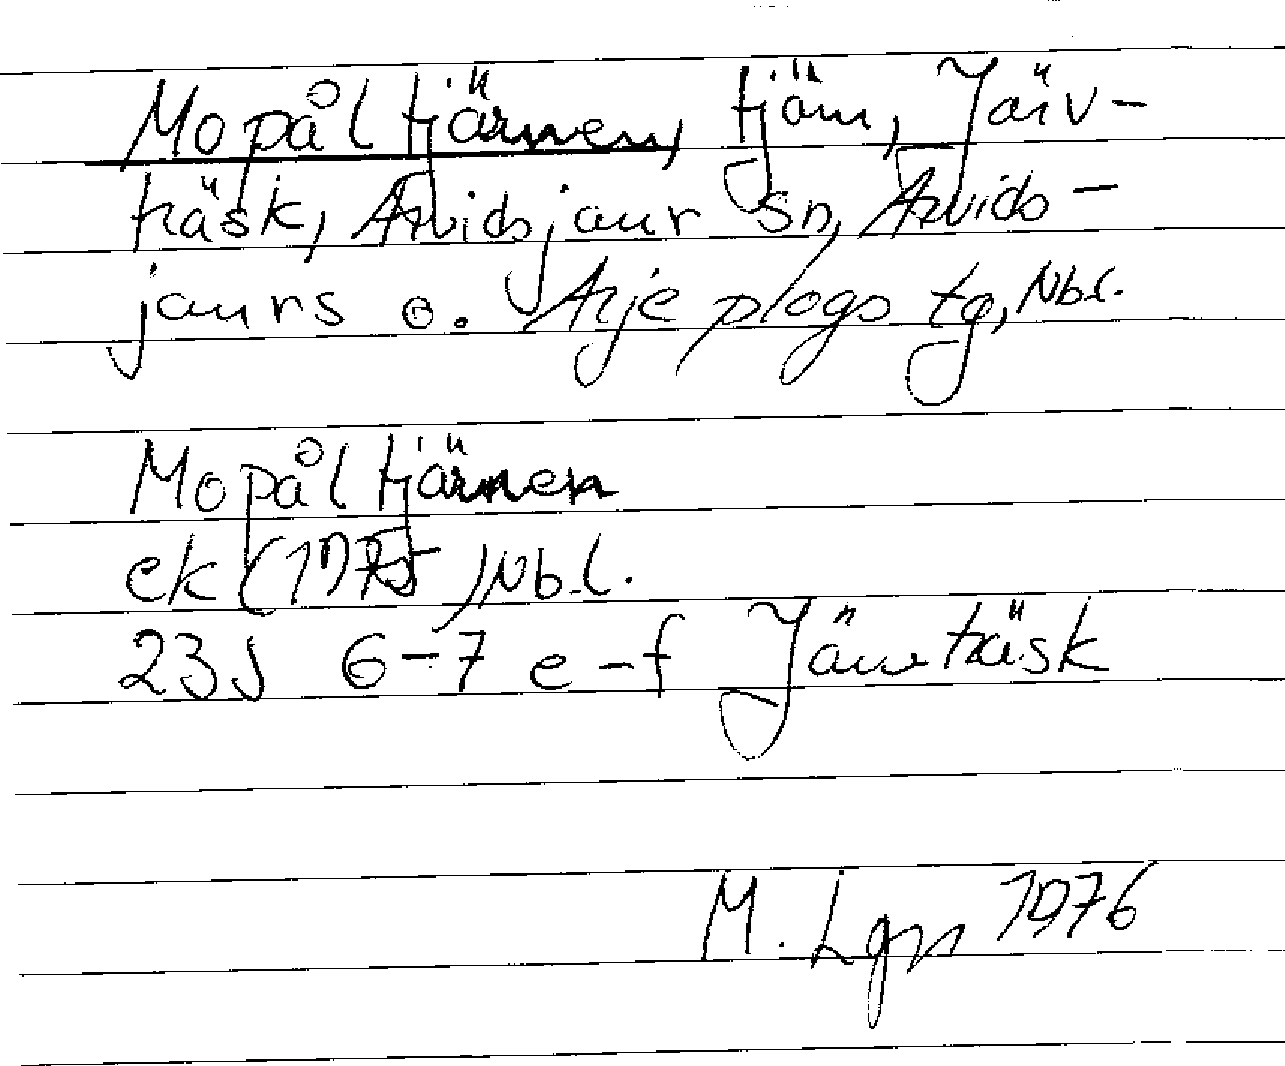 Mopåltjärnen, tjärn, Järv-
träsk, Arvidsjaur sn, Arvids-
jaurs o. Arjeplogs tg, Nbl.
Mopåltjärnen
ek (1975) Nbl.
23J 6-7 e-f Järvträsk
M. Lgn 1976